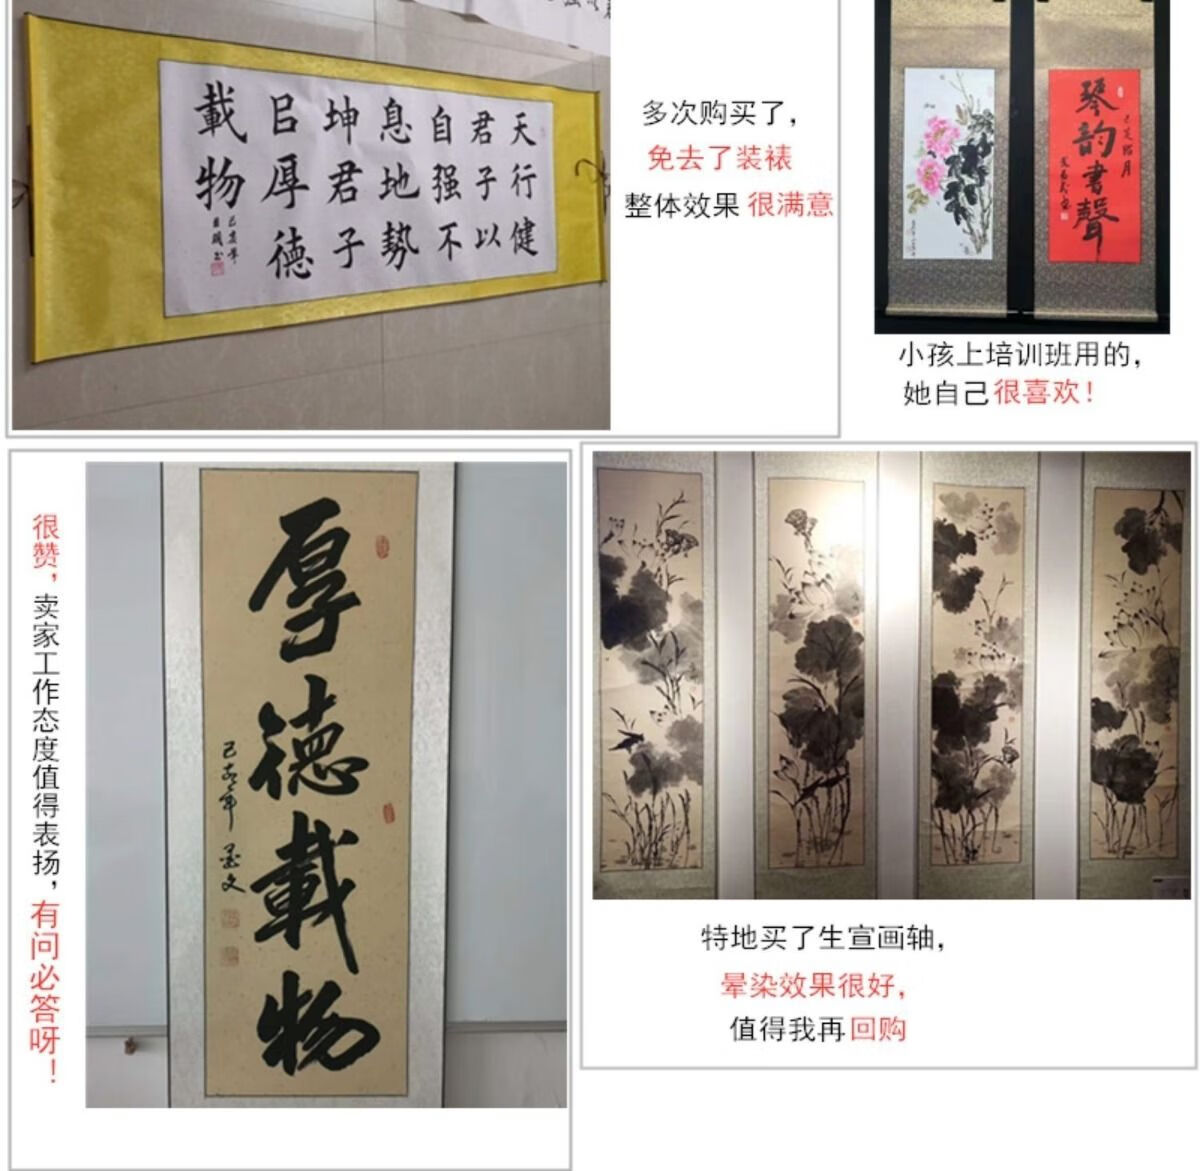 天行健
君子以
自强不
息地勢
坤君子
㠯厚德
載物
己亥年
多次购买了，
免去了装裱
整体效果 很满意
琴韵書聲
小孩上培训班用的，
她自己很喜欢！
很赞，卖家工作态度值得表扬，有问必答呀！
厚德載物
己亥年 墨文
特地买了生宣画轴，
晕染效果很好，
值得我再回购